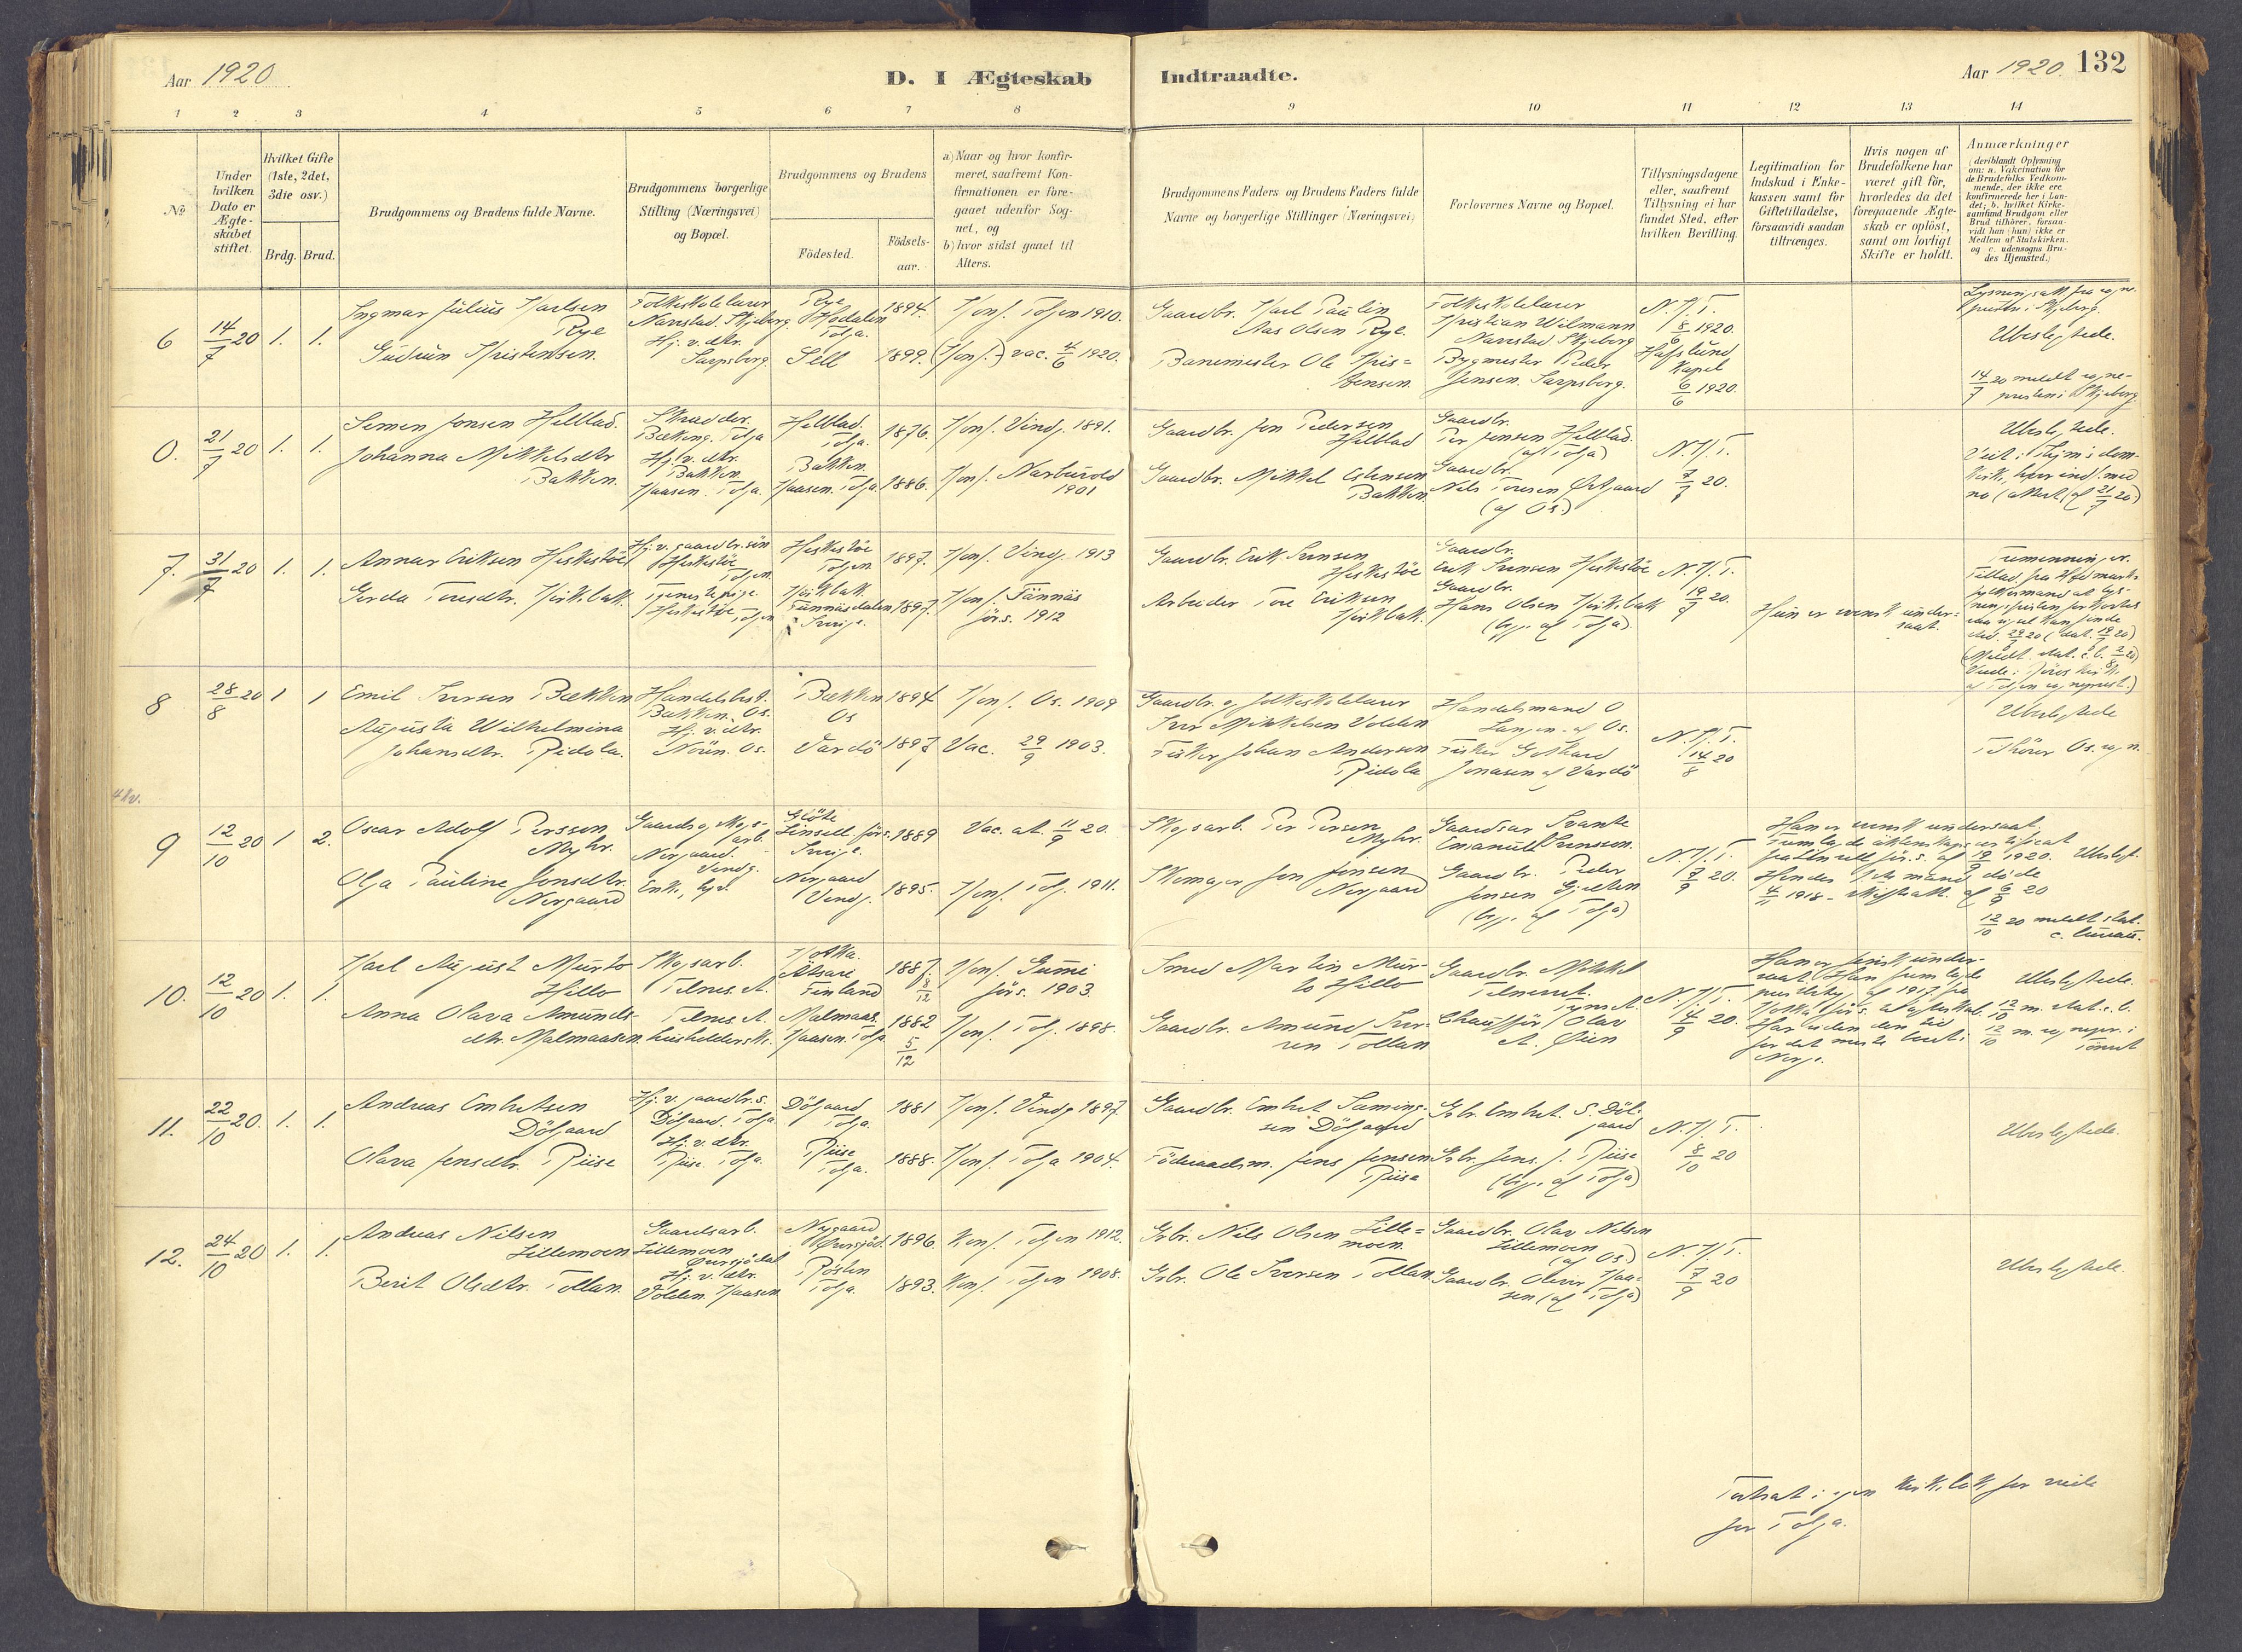 Aar 1920
D. I Ægteskab
Indtraadte.
Aar 1920. 132
1 2 3 4 5 6 7 8
9 10 11 12 13 14
No
Under hvilken Dato er Ægte-skabet stiftet.
Hvilket Gifte (1ste, 2det, 3die osv.)
Brdg. Brud.
Brudgommens og Brudens fulde Navne.
Brudgommens borgerlige Stilling (Næringsvei) og Bopæl.
Brudgommens og Brudens
Födested.
Födsels-aar.
a) Naar og hvor konfir-
meret, saafremt Kon-
firmationen er fore-
gaaet udenfor Sog-
net, og
b) hvor sidst gaaet til
Alters.
Brudgommens Faders og Brudens Faders fulde
Navne og borgerlige Stillinger (Næringsvei)
Forlovernes Navne og Bopæl.
Tillysningsdagene
eller, saafremt
Tillysning ei har
fundet Sted, efter
hvilken Bevilling.
Legitimation for
Indskud i Enke-
kassen samt for
Giftetilladelse,
forsaavidt saadan
tiltrænges.
Hvis nogen af
Brudefolkene har
været gift för,
hvorledes da det
foregaaende Ægte-
skab er oplöst,
samt om lovligt
Skifte er holdt.
Anmærkninger
(deriblandt Oplysning
om: a. Vakcination for
de Brudefolks Vedkom-
mende, der ikke ere
konfirmerede her i Lan-
det; b. hvilket Kirke-
samfund Brudgom eller
Brud tilhörer, forsaa-
vidt han (hun) ikke er
Medlem af Statskirken.
og c. udensogns Bru-
des Hjemsted.)
6 14/7 20 1. 1.
Ingmar Julius Karlsen
Rye
Gudrun Kristensen.
Folkeskolelærer
Navestad. Skjeberg.
Hj. v. dtr.
Sarpsborg
Rye
Hodalen
Tolga.
Sell
1894.
1899.
Konf. Tolgen 1910.
(Konf.) vac. 4/6 1920.
Gaardbr. Karl Paulin
Aas Olsen Rye.
Banemester Ole Kris=
tensen.
Folkeskolelærer
Kristian Wilmann
Navestad. Skjeberg
Bygmester Peder
Jensen. Sarpsborg.
N. K. T.
1920.
Hafslund
Kapel
6/6 1920.
Ubeslegtede.
14/7 20 meldt sogne-
presten i Skjeberg.
0. 21/7 20 1. 1.
Semen Jonsen Hilblad.
Johanna Mikkelsdtr
Bakken.
Skrædder.
Bekking. Tolga
Hj. v. dtr.
Bakken
Haasen. Tolga.
Hilblad.
Tolga.
Bakken.
Haasen. Tolga
1876.
1886.
Konf. Ving. 1891.
Konf. Narbuvold
1901
Gaardbr. Jon Pedersen
Hilblad
Gaardbr. Mikkel Estensen
Bakken
Gaardbr.
Per Jonsen Hilblad.
(af Tolga)
Gaardbr.
Nils Toresen Østgaard
(af Os.)
N. K. T.
7/7 20.
Ubeslegtede.
7. 31/7 20 1. 1.
Annar Eriksen Heskestöe
Gerda Toresdtr. Kirkbak.
Hj. v. gaardbr. sön
Heskestöe
Tolgen
Tjenestepige.
Heskestöe, Tolgen
Heskestöe
Tolgen
Kirkbak.
Fünnäsdalen
Sverige.
1897.
1897.
Konf. Ving. 1913
Konf. Fännäs
förs. 1912
Gaardbr. Erik Svensen
Heskestöe
Arbeider Tore Eriksen
Kirkbak.
Gaardbr.
Erik Svensen Heskestöe
Gaardbr.
Hans Olsen Kirkbak
(begge af Tolga).
N. K. T.
19/7 20.
Hun er svensk under=
saat.
Tremenninger.
8 28/8 20 1 1
Emil Iversen Bækken
Augusta Wilhelmina
Johansdtr. Ridola.
Handelsbest.
Bækken. Os.
Hj. v. dtr.
Nörin. Os.
Bækken
Os
Vardö
1894
1897
Konf. Os. 1909
Vac. 29/9 1903.
Gaardbr. og folkeskolelærer
Iver Mikkelsen Volden
Fisker Johan Andersen
Ridola
Handelsmand O
Langen. af Os.
Fisker Gothard
Jonasen af Vardö
N. K. T.
14/8 20
Ubeslegtede
Tilhörer Os. sogn.
9 12/10 20 1 2.
Oscar Adolf Persson
Myhr.
Olga Pauline Jonsdtr.
Nergaard
Gaards og skogs-
arb.
Nergaard.
Vingg.
Enke, hj. v.
Glöte
Linsell. förs.
Sverige.
Nergaard
Vingg.
1889
1895.
Vac. at. 11/9 20.
Konf. Tolg. 1911.
Skogsarb. Per Persen
Myhr.
Skomager Jon Jonsen
Nergaard
Gaardsar Svante
Emanuel Svensson.
Gaardbr. Peder
Jensen Gjelten
(begge af Tolga)
N. K. T.
7/9 20.
Han er svensk undersaat.
1920. Ubeslegt.
Hendes 1ste mand döde
4/11 1918 - skifteatt. af 6/9 20
12/10 20 meldt stat.
c. bureau.
10. 12/10 20 1. 1.
Karl August Murto
Hillo
Anna Olava Amunds-
dtr. Malmaasen
Skogsarb.
Telnes. A.
Telnes. A.
husholderske.
Ätsäri
Finland
Malmaas.
Haasen. Tolga
1887.
8/12
1882
5/12
Konf. Gumi
förs. 1903.
Konf. Tolg. 1898.
Smed Martin Mur-
to Hillo
Gaardbr. Amund Iver-
sen Tollan
Gaardbr. Mikkel
Telneset.
Tyns. A.
Chaufför Olav
A. Øien
N. K. T.
4/9 20.
Han er finsk under-
saat. Han fremlagde
Ubeslegtede.
12/10 m. stat. c. b.
11. 22/10 20. 1. 1.
Andreas Embretsen
Dölgaard
Olava Jensdtr. Riise
Hj. v. gaardbr. s.
Dölgaard. Tolga
Hj. v. dtr.
Riise. Tolga.
Dölgaard
Tolga.
Riise
Tolga.
1881
1888.
Konf. Vingg 1897.
Konf. Tolga 1904.
Gaardbr. Embret Saming-
sen Dölgaard
Föderaadsm. Jens Jensen
Riise
Gbr. Embret. S. Döl-
gaard
Gbr. Jens. J. Riise
(begge af Tolga)
N. K. T.
8/10 20
Ubeslegtede.
12. 24/10 20 1. 1.
Andreas Nilsen
Lillemoen
Berit Olsdtr. Tollan.
Gaardsarb.
Lillemoen
Øversjödal
Hj. v. dtr.
Volden. Haasen
Nygaard
Øversjöd.
Röslen
Tolga.
1896.
1893.
Konf. Tolgen 1912.
Konf. Tolgen 1908.
Gbr. Nils Olsen Lille=
moen.
Gbr. Ole Iversen Tollan.
Gaardbr. Olav Nilsen
Lillemoen
(af Os)
Gaardbr. Oliver Haa-
sen (af Tolga)
N. K. T.
7/9 20
Ubeslegtede.
Fortsat i egen kirkebok for viede
for Tolga.